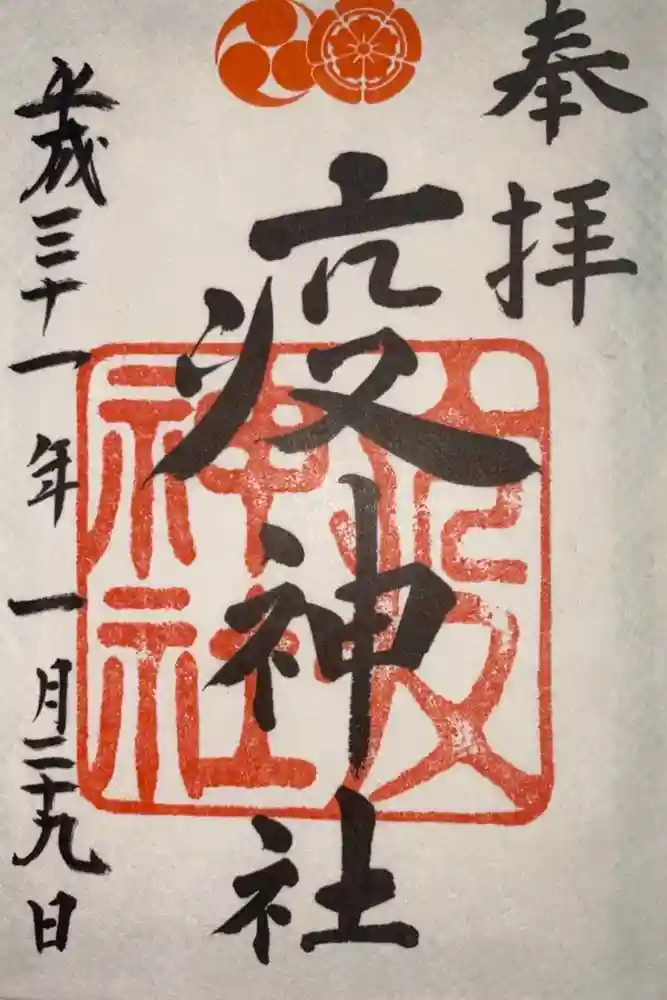 奉拝
疫神社
疫神社
平成三十一年一月二十九日